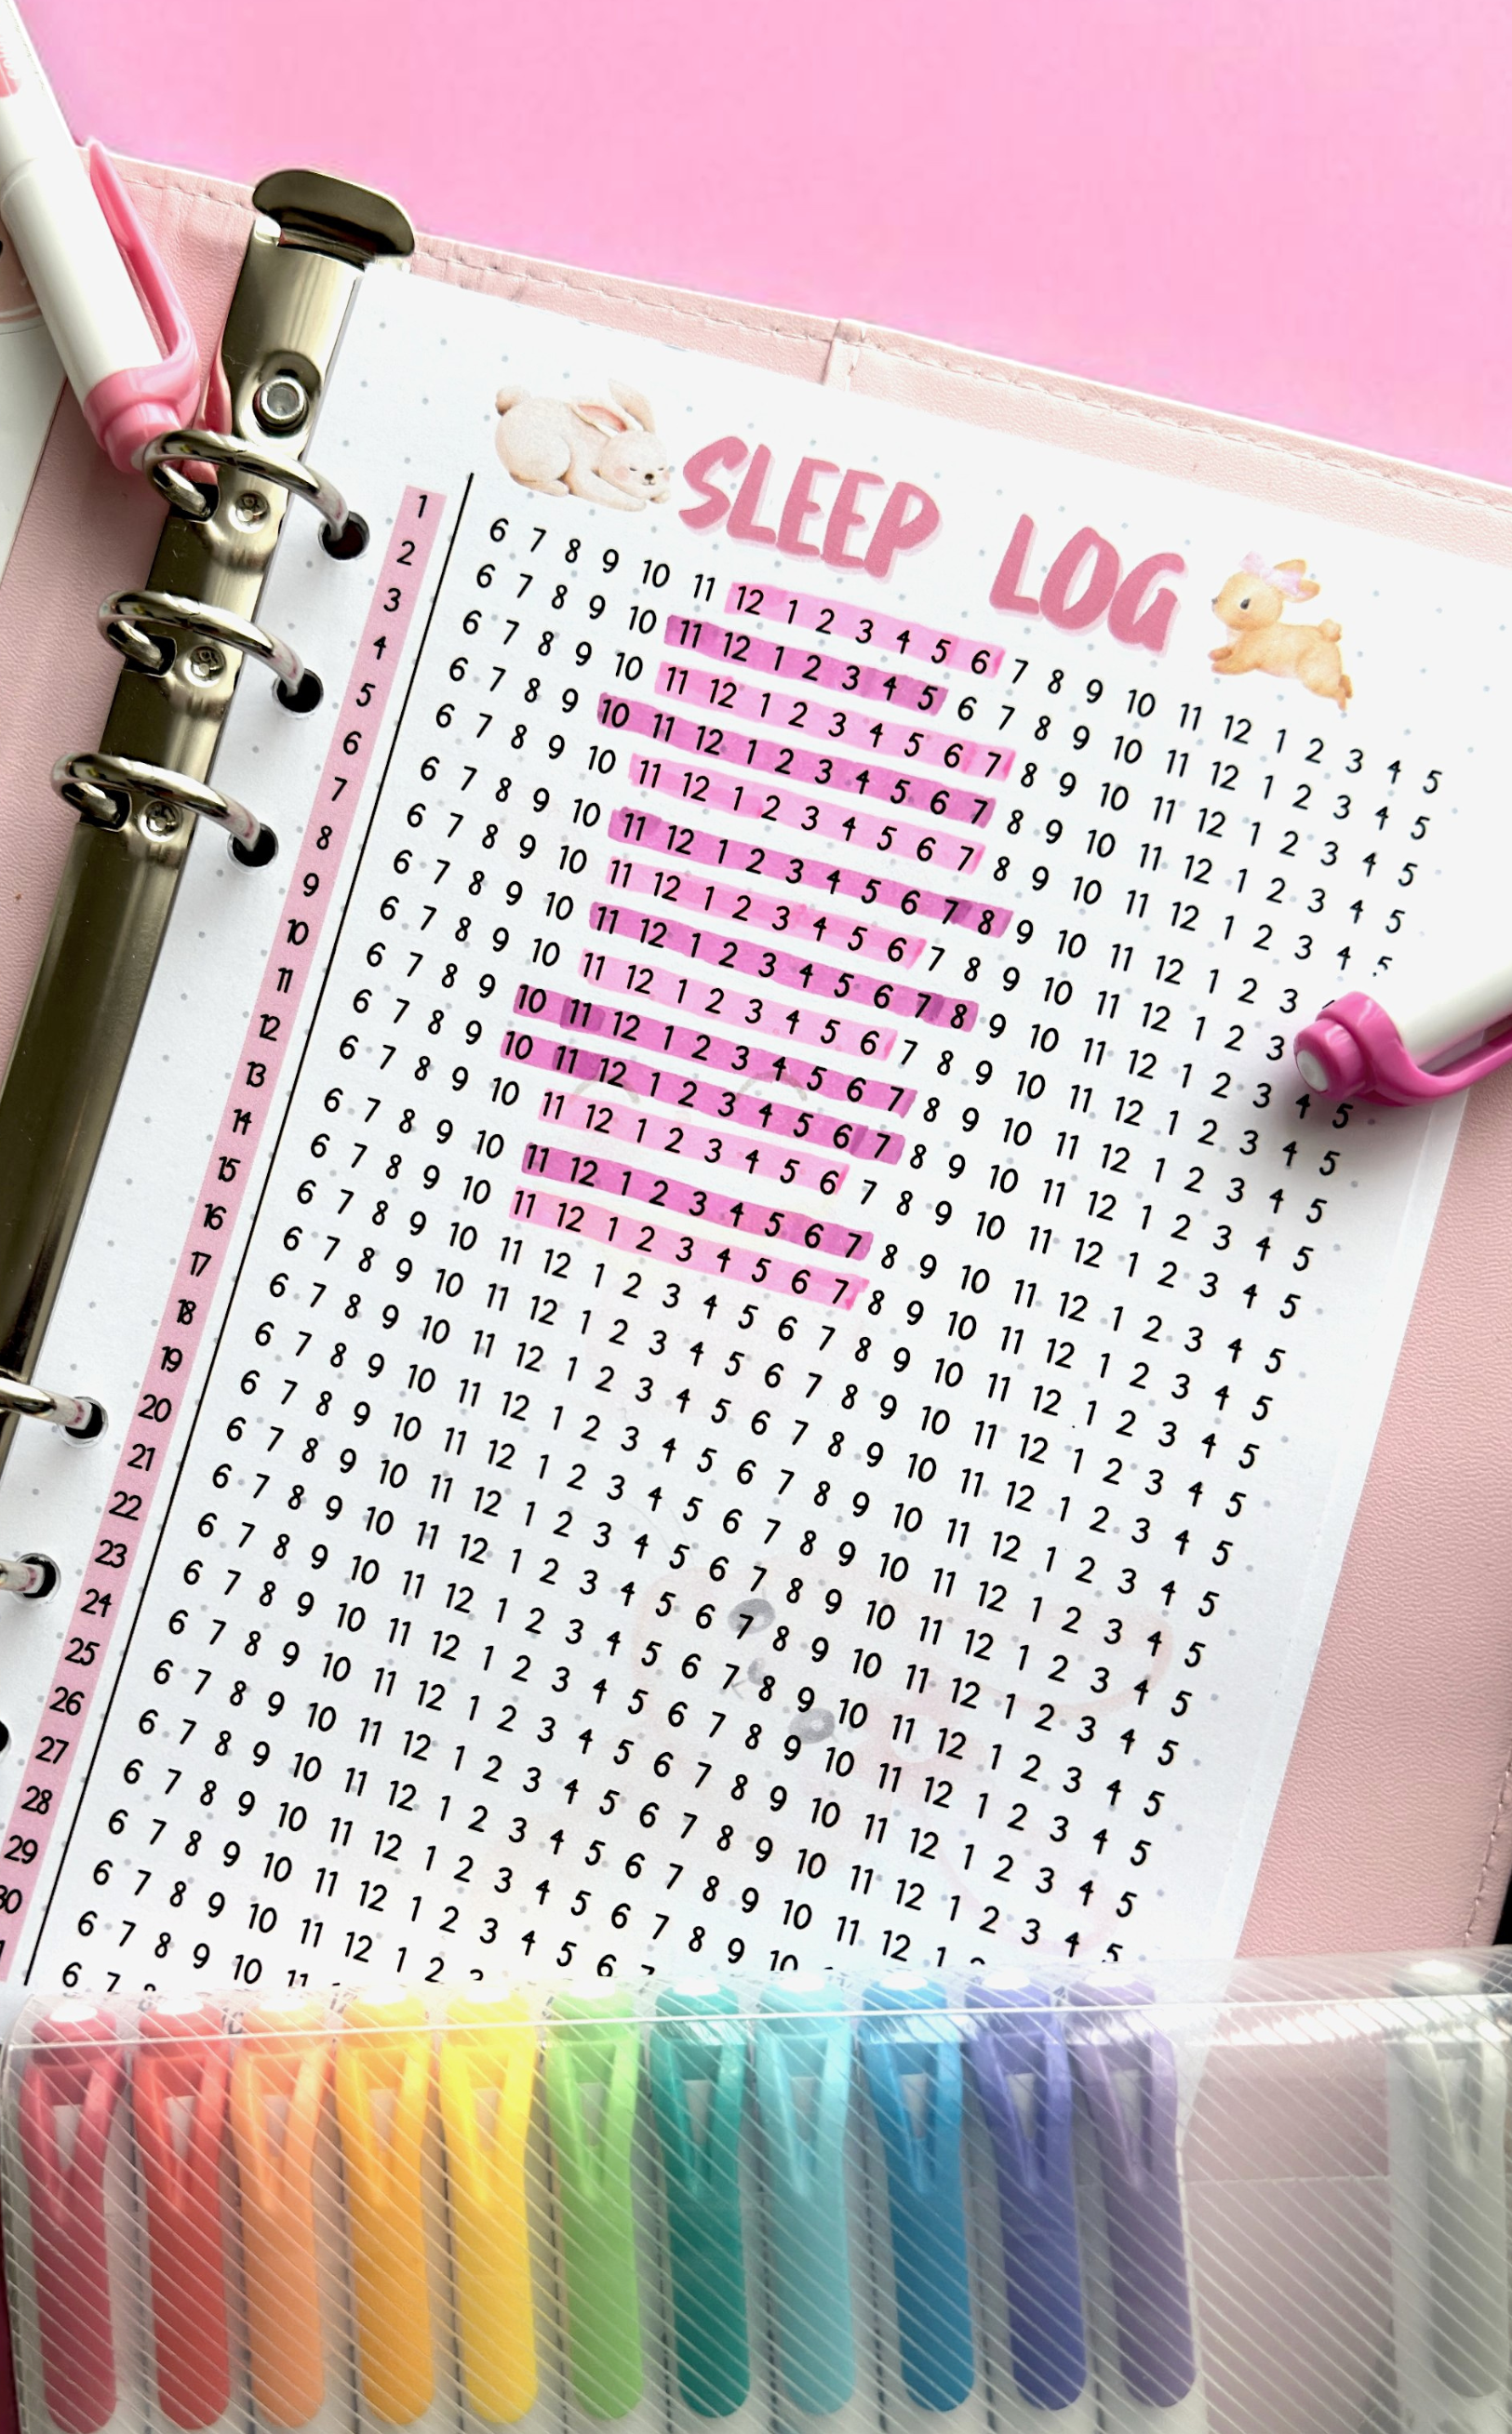 SLEEP LOG
1 6 7 8 9 10 11 12 1 2 3 4 5 6 7 8 9 10 11 12 1 2 3 4 5
2 6 7 8 9 10 11 12 1 2 3 4 5 6 7 8 9 10 11 12 1 2 3 4 5
3 6 7 8 9 10 11 12 1 2 3 4 5 6 7 8 9 10 11 12 1 2 3 4 5
4 6 7 8 9 10 11 12 1 2 3 4 5 6 7 8 9 10 11 12 1 2 3 4 5
5 6 7 8 9 10 11 12 1 2 3 4 5 6 7 8 9 10 11 12 1 2 3 4 5
6 6 7 8 9 10 11 12 1 2 3 4 5 6 7 8 9 10 11 12 1 2 3
7 6 7 8 9 10 11 12 1 2 3 4 5 6 7 8 9 10 11 12 1 2 3
8 6 7 8 9 10 11 12 1 2 3 4 5 6 7 8 9 10 11 12 1 2 3 4 5
9 6 7 8 9 10 11 12 1 2 3 4 5 6 7 8 9 10 11 12 1 2 3 4 5
10 6 7 8 9 10 11 12 1 2 3 4 5 6 7 8 9 10 11 12 1 2 3 4 5
11 6 7 8 9 10 11 12 1 2 3 4 5 6 7 8 9 10 11 12 1 2 3 4 5
12 6 7 8 9 10 11 12 1 2 3 4 5 6 7 8 9 10 11 12 1 2 3 4 5
13 6 7 8 9 10 11 12 1 2 3 4 5 6 7 8 9 10 11 12 1 2 3 4 5
14 6 7 8 9 10 11 12 1 2 3 4 5 6 7 8 9 10 11 12 1 2 3 4 5
15 6 7 8 9 10 11 12 1 2 3 4 5 6 7 8 9 10 11 12 1 2 3 4 5
16 6 7 8 9 10 11 12 1 2 3 4 5 6 7 8 9 10 11 12 1 2 3 4 5
17 6 7 8 9 10 11 12 1 2 3 4 5 6 7 8 9 10 11 12 1 2 3 4 5
18 6 7 8 9 10 11 12 1 2 3 4 5 6 7 8 9 10 11 12 1 2 3 4 5
19 6 7 8 9 10 11 12 1 2 3 4 5 6 7 8 9 10 11 12 1 2 3 4 5
20 6 7 8 9 10 11 12 1 2 3 4 5 6 7 8 9 10 11 12 1 2 3 4 5
21 6 7 8 9 10 11 12 1 2 3 4 5 6 7 8 9 10 11 12 1 2 3 4 5
22 6 7 8 9 10 11 12 1 2 3 4 5 6 7 8 9 10 11 12 1 2 3 4 5
23 6 7 8 9 10 11 12 1 2 3 4 5 6 7 8 9 10 11 12 1 2 3 4 5
24 6 7 8 9 10 11 12 1 2 3 4 5 6 7 8 9 10 11 12 1 2 3 4 5
25 6 7 8 9 10 11 12 1 2 3 4 5 6 7 8 9 10 11 12 1 2 3 4 5
26 6 7 8 9 10 11 12 1 2 3 4 5 6 7 8 9 10 11 12 1
27 6 7 8 9 10 11 12 1 2 3 4 5 6 7 8 9 10
28 6 7 8 9 10 11 12 1 2 3 4 5 6
29 6 7 8 9 10 11 12 1 2
30 6 7 8 9 10 11
6 7